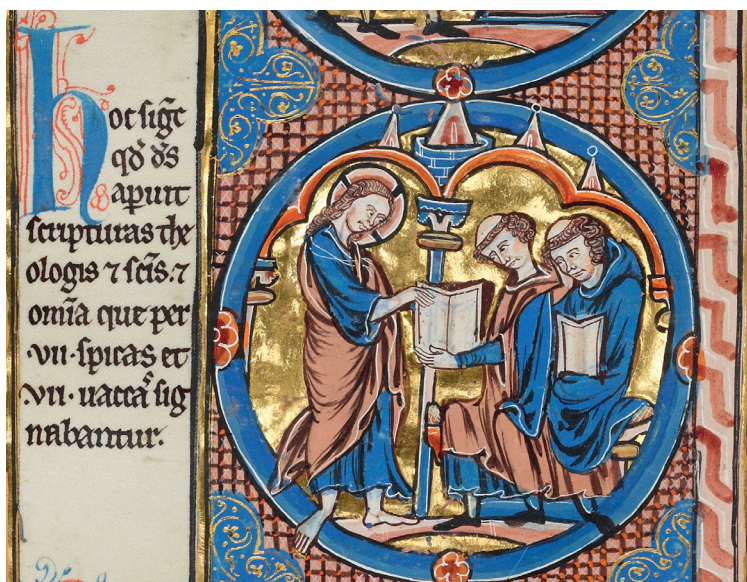 hoc sigͣt
qđ đs
apuit
scripturas the
ologis ⁊ scīs. ⁊
omīa que per
·vii· spicas et
vii· uaccaͣ sig
nabantur.